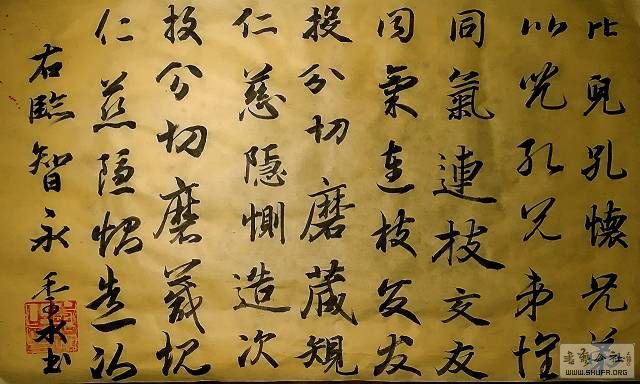 比兒孔懷兄弟
比兒孔兄弟懷
同氣連枝交友
同氣連枝交友
投分切磨箴規
仁慈隱惻造次
投分切磨箴規
仁慈隱惻造次
右臨智永
WWW.SHUFA.ORG